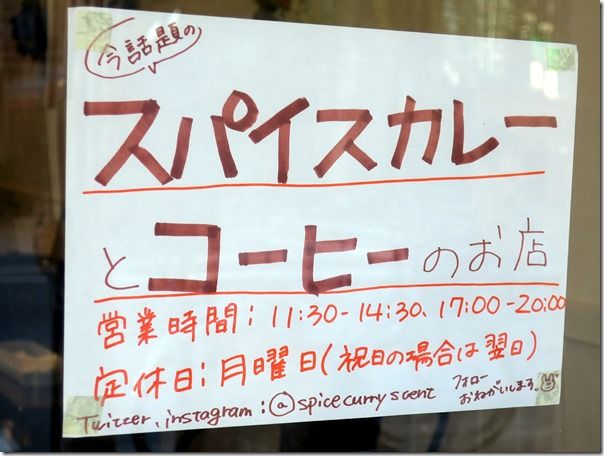 今話題の
スパイスカレー
とコーヒーのお店
営業時間：11:30-14:30、17:00-20:00
定休日：月曜日(祝日の場合は翌日)
Twitter、instagram：@spicecurryscent
フォロー
おねがいします。